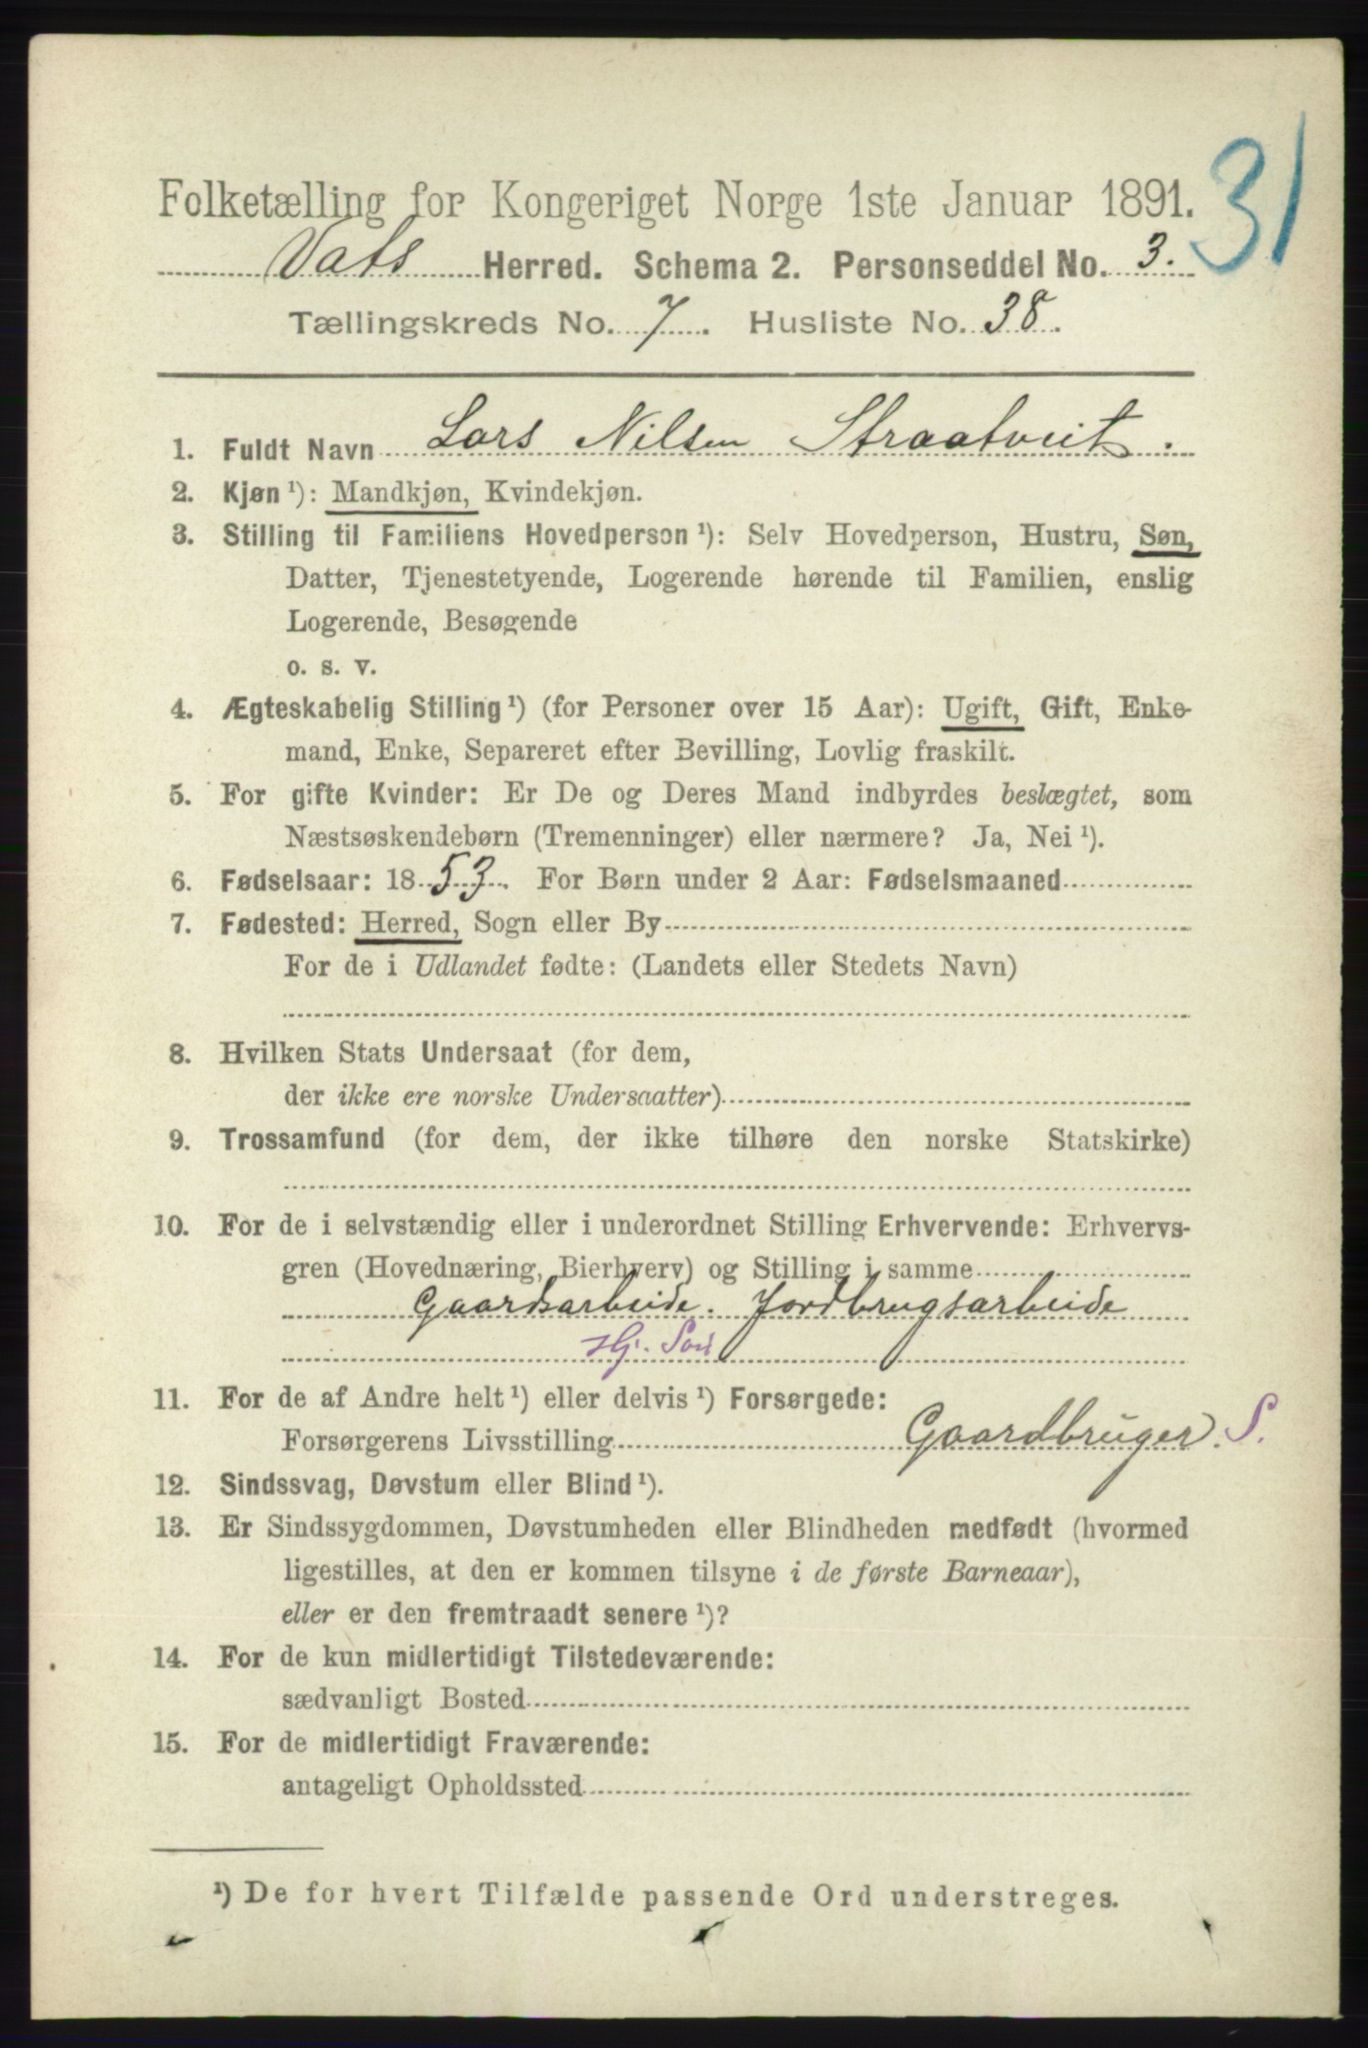 31
Folketælling for Kongeriget Norge 1ste Januar 1891.
Vats Herred. Schema 2. Personseddel No. 3.
Tællingskreds No. 7. Husliste No. 38.
1. Fuldt Navn Lars Nilsen Straatveit.
2. Kjøn ¹): Mandkjøn, Kvindekjøn.
3. Stilling til Familiens Hovedperson ¹): Selv Hovedperson, Hustru, Søn,
Datter, Tjenestetyende, Logerende hørende til Familien, enslig
Logerende, Besøgende
o. s. v.
4. Ægteskabelig Stilling ¹) (for Personer over 15 Aar): Ugift, Gift, Enke-
mand, Enke, Separeret efter Bevilling, Lovlig fraskilt.
5. For gifte Kvinder: Er De og Deres Mand indbyrdes beslægtet, som
Næstsøskendebørn (Tremenninger) eller nærmere? Ja, Nei ¹).
6. Fødselsaar: 1853. For Børn under 2 Aar: Fødselsmaaned
7. Fødested: Herred, Sogn eller By
For de i Udlandet fødte: (Landets eller Stedets Navn)
8. Hvilken Stats Undersaat (for dem,
der ikke ere norske Undersaatter)
9. Trossamfund (for dem, der ikke tilhøre den norske Statskirke)
10. For de i selvstændig eller i underordnet Stilling Erhvervende: Erhvervs-
gren (Hovednæring, Bierhverv) og Stilling i samme
Gaardsarbeide. Jordbrugsarbeide
Hj. Søn
11. For de af Andre helt ¹) eller delvis ¹) Forsørgede:
Forsørgerens Livsstilling Gaardbruger. S.
12. Sindssvag, Døvstum eller Blind ¹).
13. Er Sindssygdommen, Døvstumheden eller Blindheden medfødt (hvormed
ligestilles, at den er kommen tilsyne i de første Barneaar),
eller er den fremtraadt senere ¹)?
14. For de kun midlertidigt Tilstedeværende:
sædvanligt Bosted
15. For de midlertidigt Fraværende:
antageligt Opholdssted
¹) De for hvert Tilfælde passende Ord understreges.